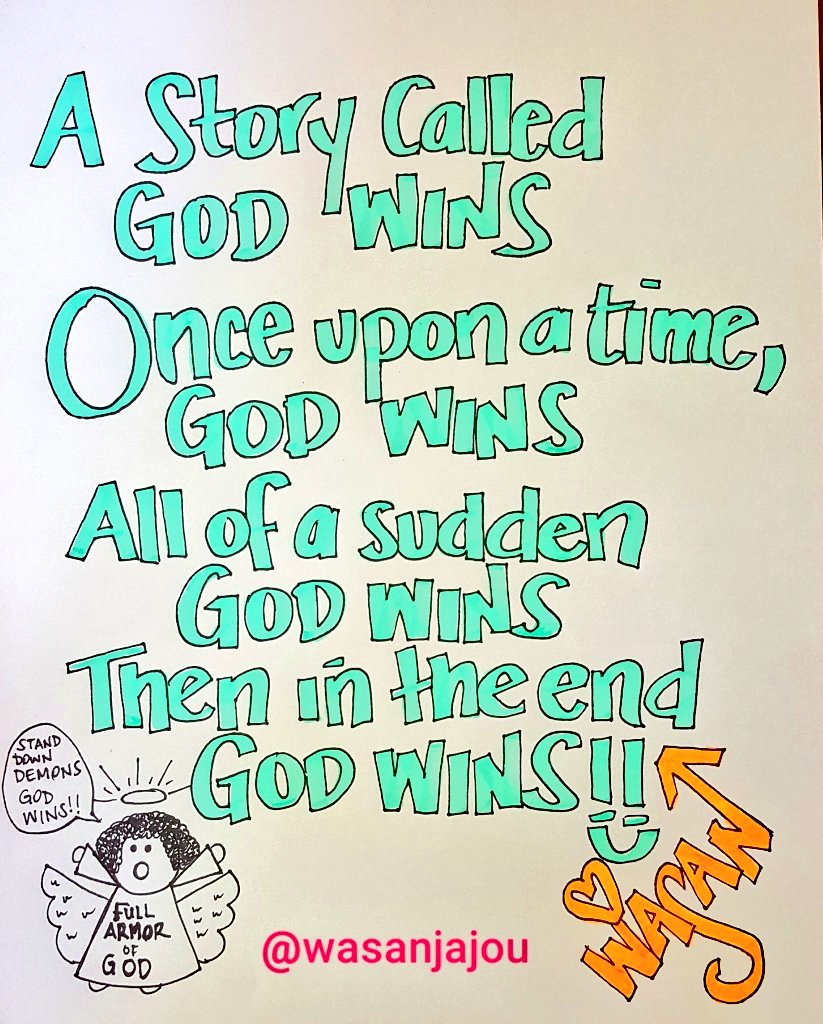 A Story Called
GOD WINS
Once upon a time,
GOD WINS
All of a sudden
GOD WINS
Then in the end
GOD WINS!!
STAND
DOWN
DEMONS
GOD
WINS!!
FULL
ARMOR
OF
GOD
WASAN
@wasanjajou